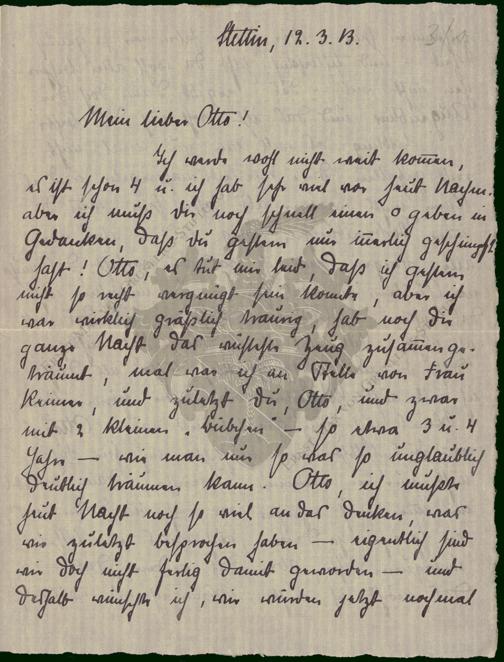 Stettin, 12. 3. 13.
Mein lieber Otto!
Ich werde wohl nicht weit kommen,
es ist schon 4 u. ich hab sehr viel vor heut Nachm.
aber ich muß dir noch schnell einen o geben in
Gedanken, daß du gestern nur innerlich geschimpft
hast! Otto, es tut mir leid, daß ich gestern
nicht so recht vergnügt sein konnte, aber ich
war wirklich gräßlich traurig, hab noch die
ganze Nacht das wüsteste Zeug zusammenge-
träumt, mal war ich an Stelle von Frau
und zuletzt du, Otto, und zwar
mit 2 kleinen "Bübchen" — so etwa 3 u. 4
Jahr — wie man nur so was so unglaublich
deutlich träumen kann. Otto, ich mußte
heut Nacht noch so viel an das denken, was
wir zuletzt besprochen haben — eigentlich sind
wir doch nicht fertig damit geworden — und
deshalb wünschte ich, wir würden jetzt nochmal